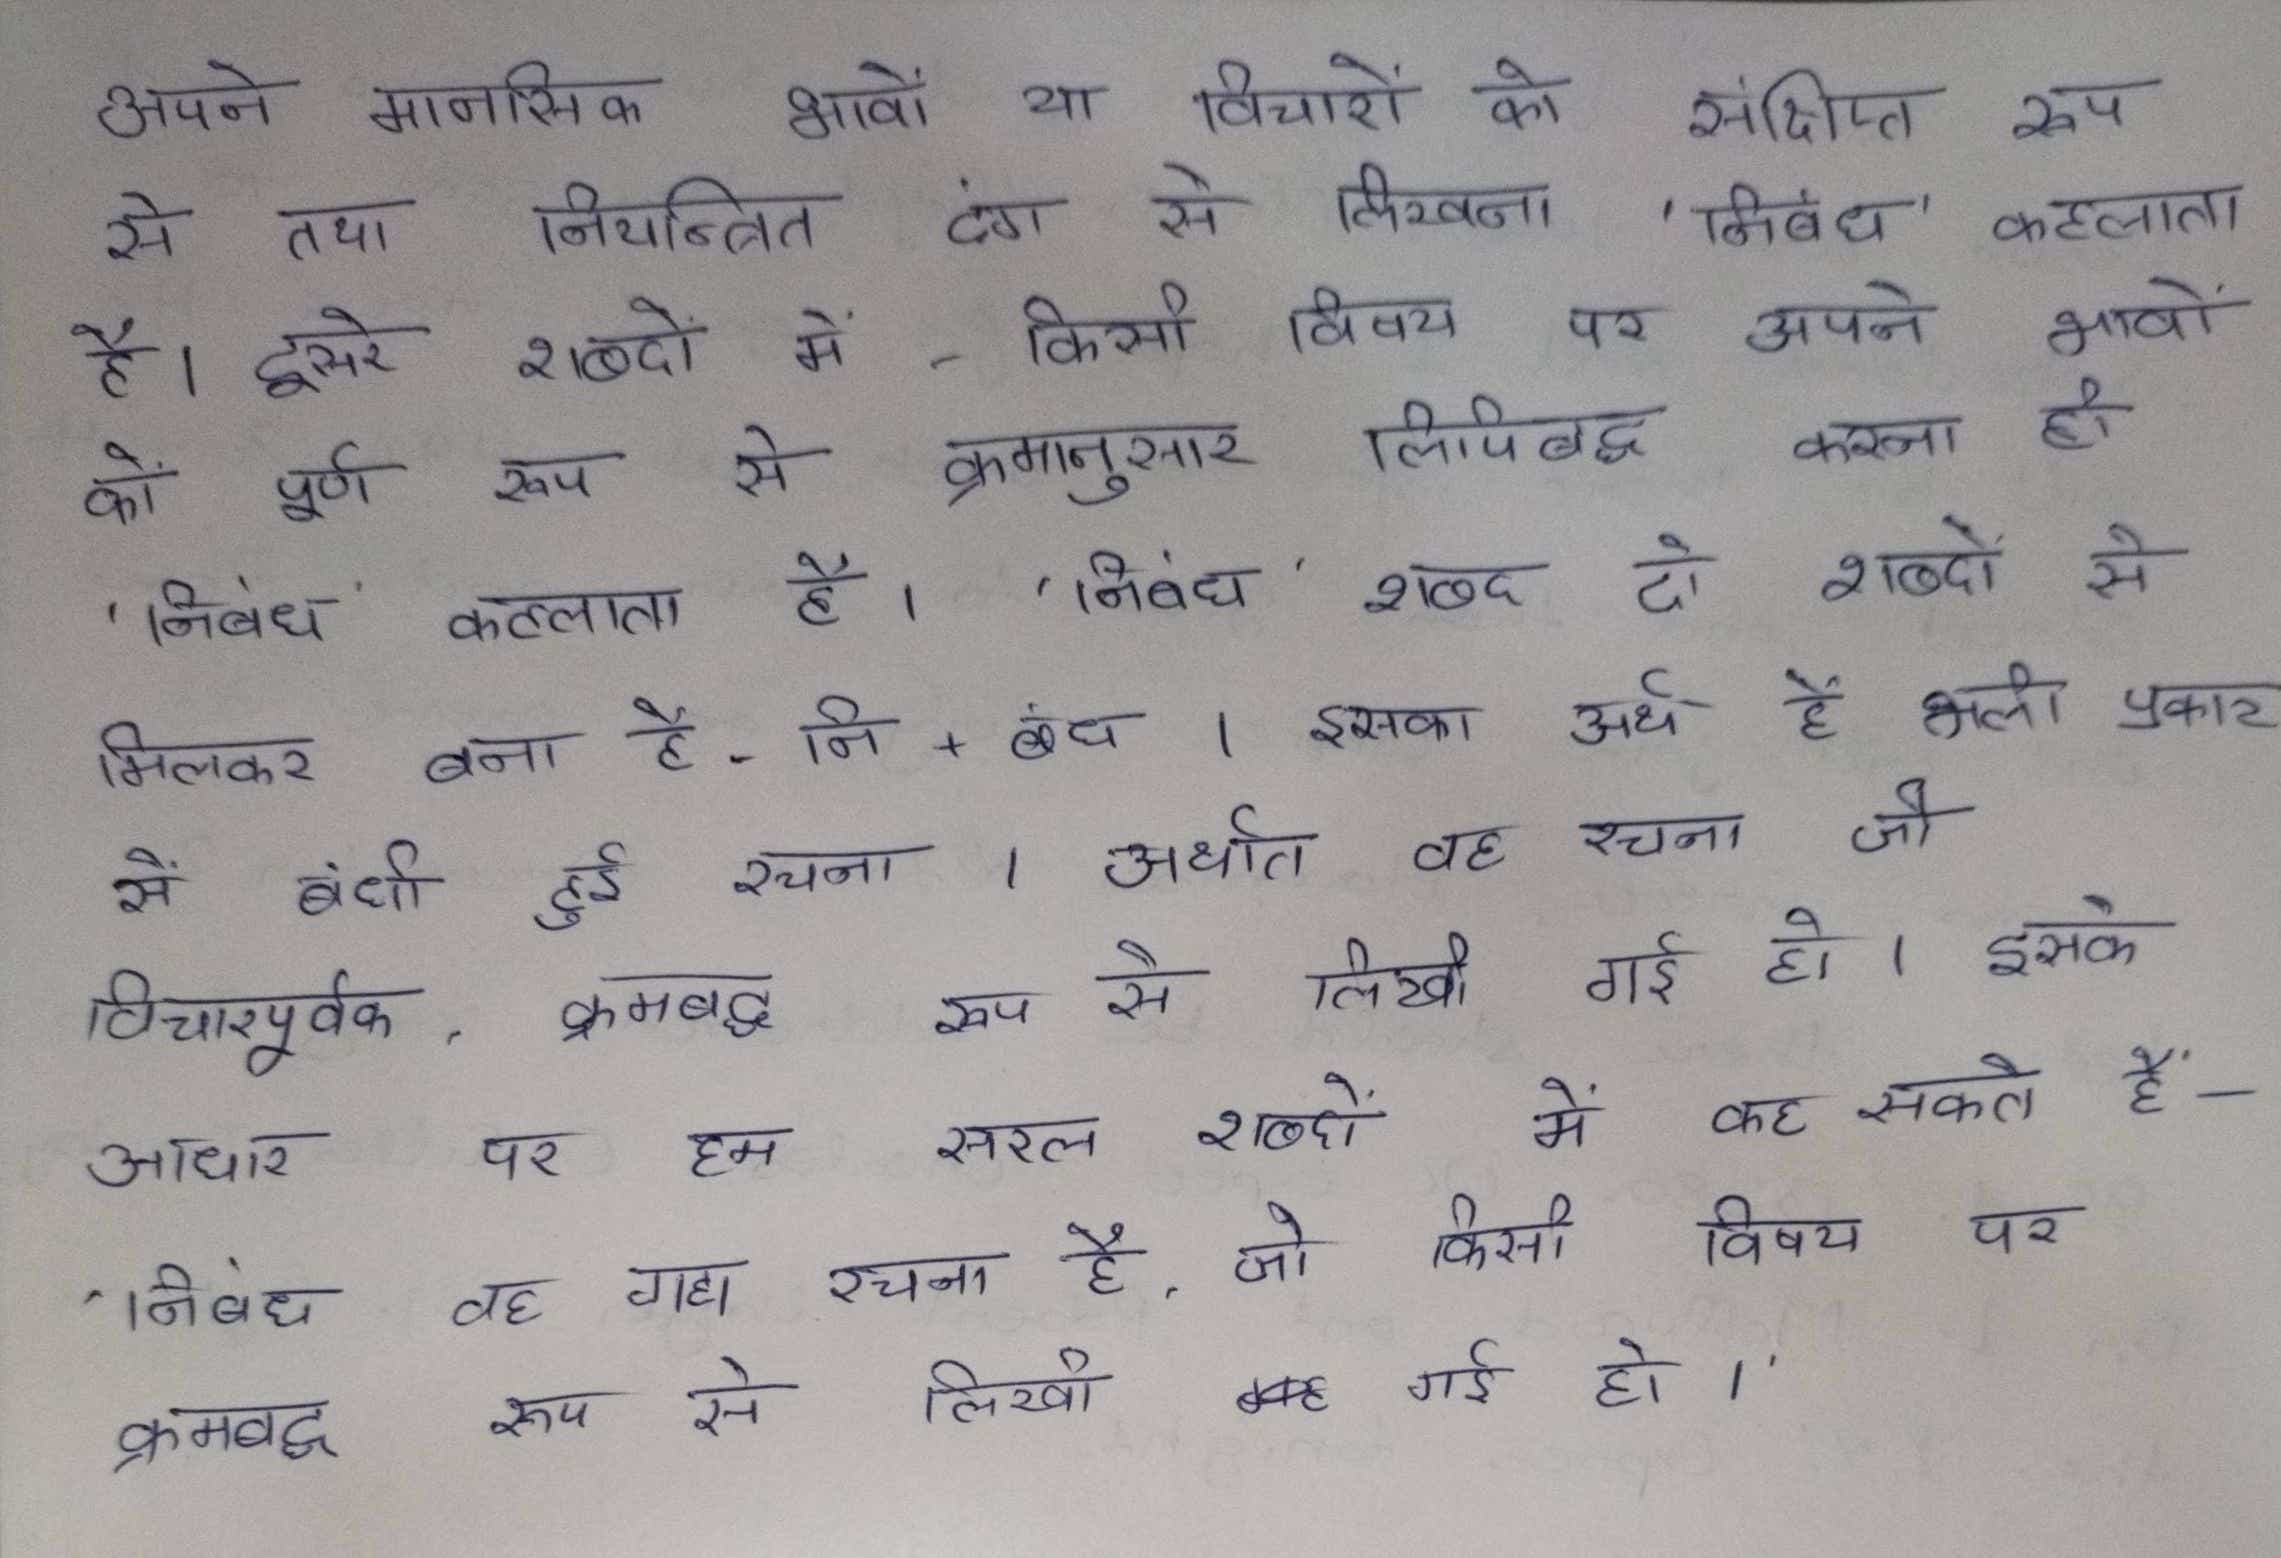 अपने मानसिक भावों या विचारों को संक्षिप्त रूप
से तथा नियन्त्रित ढंग से लिखना 'निबंध' कहलाता
है। दूसरे शब्दों में - किसी विषय पर अपने भावों
कों पूर्ण रूप से क्रमानुसार लिपिबद्ध करना ही
'निबंध' कहलाता है। 'निबंध' शब्द दो शब्दों से
मिलकर बना है - नि + बंध । इसका अर्थ हैं भली प्रकार
सें बंधी हुई रचना । अर्थात वह रचना जो
विचारपूर्वक, क्रमबद्ध रूप से लिखी गई हो । इसके
आधार पर हम सरल शब्दों में कह सकते हैं -
'निबंध वह गद्य रचना है, जो किसी विषय पर
क्रमबद्ध रूप से लिखी गई हो ।'